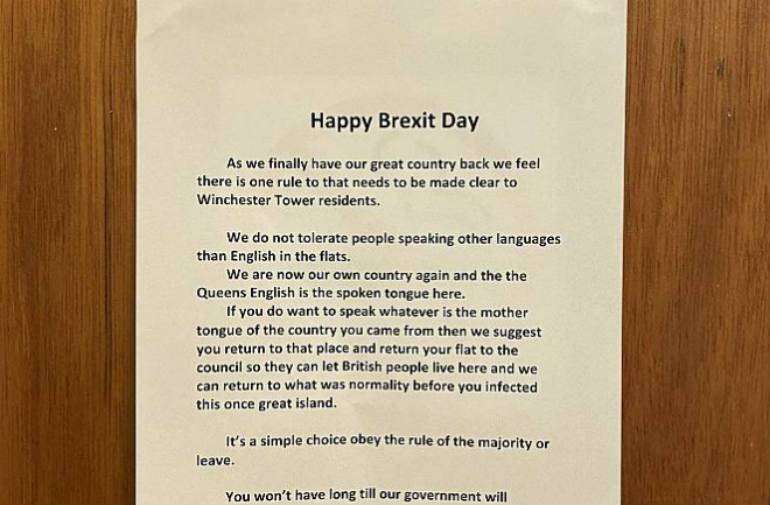 Happy Brexit Day
As we finally have our great country back we feel
there is one rule to that needs to be made clear to
Winchester Tower residents.
We do not tolerate people speaking other languages
than English in the flats.
We are now our own country again and the the
Queens English is the spoken tongue here.
If you do want to speak whatever is the mother
tongue of the country you came from then we suggest
you return to that place and return your flat to the
council so they can let British people live here and we
can return to what was normality before you infected
this once great island.
It's a simple choice obey the rule of the majority or
leave.
You won't have long till our government will